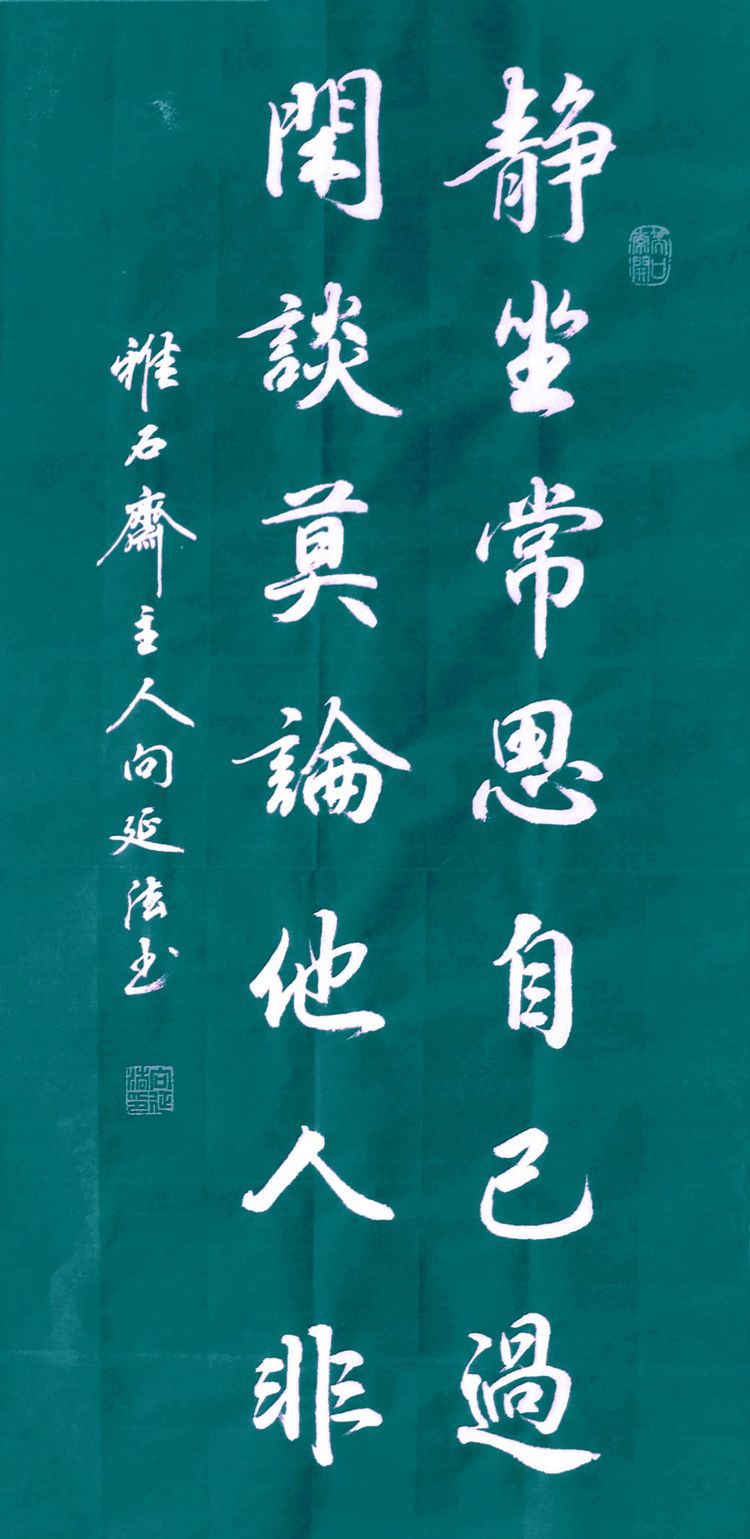 静坐常思自己過
閑談莫論他人非
雅石齋主人向延法书